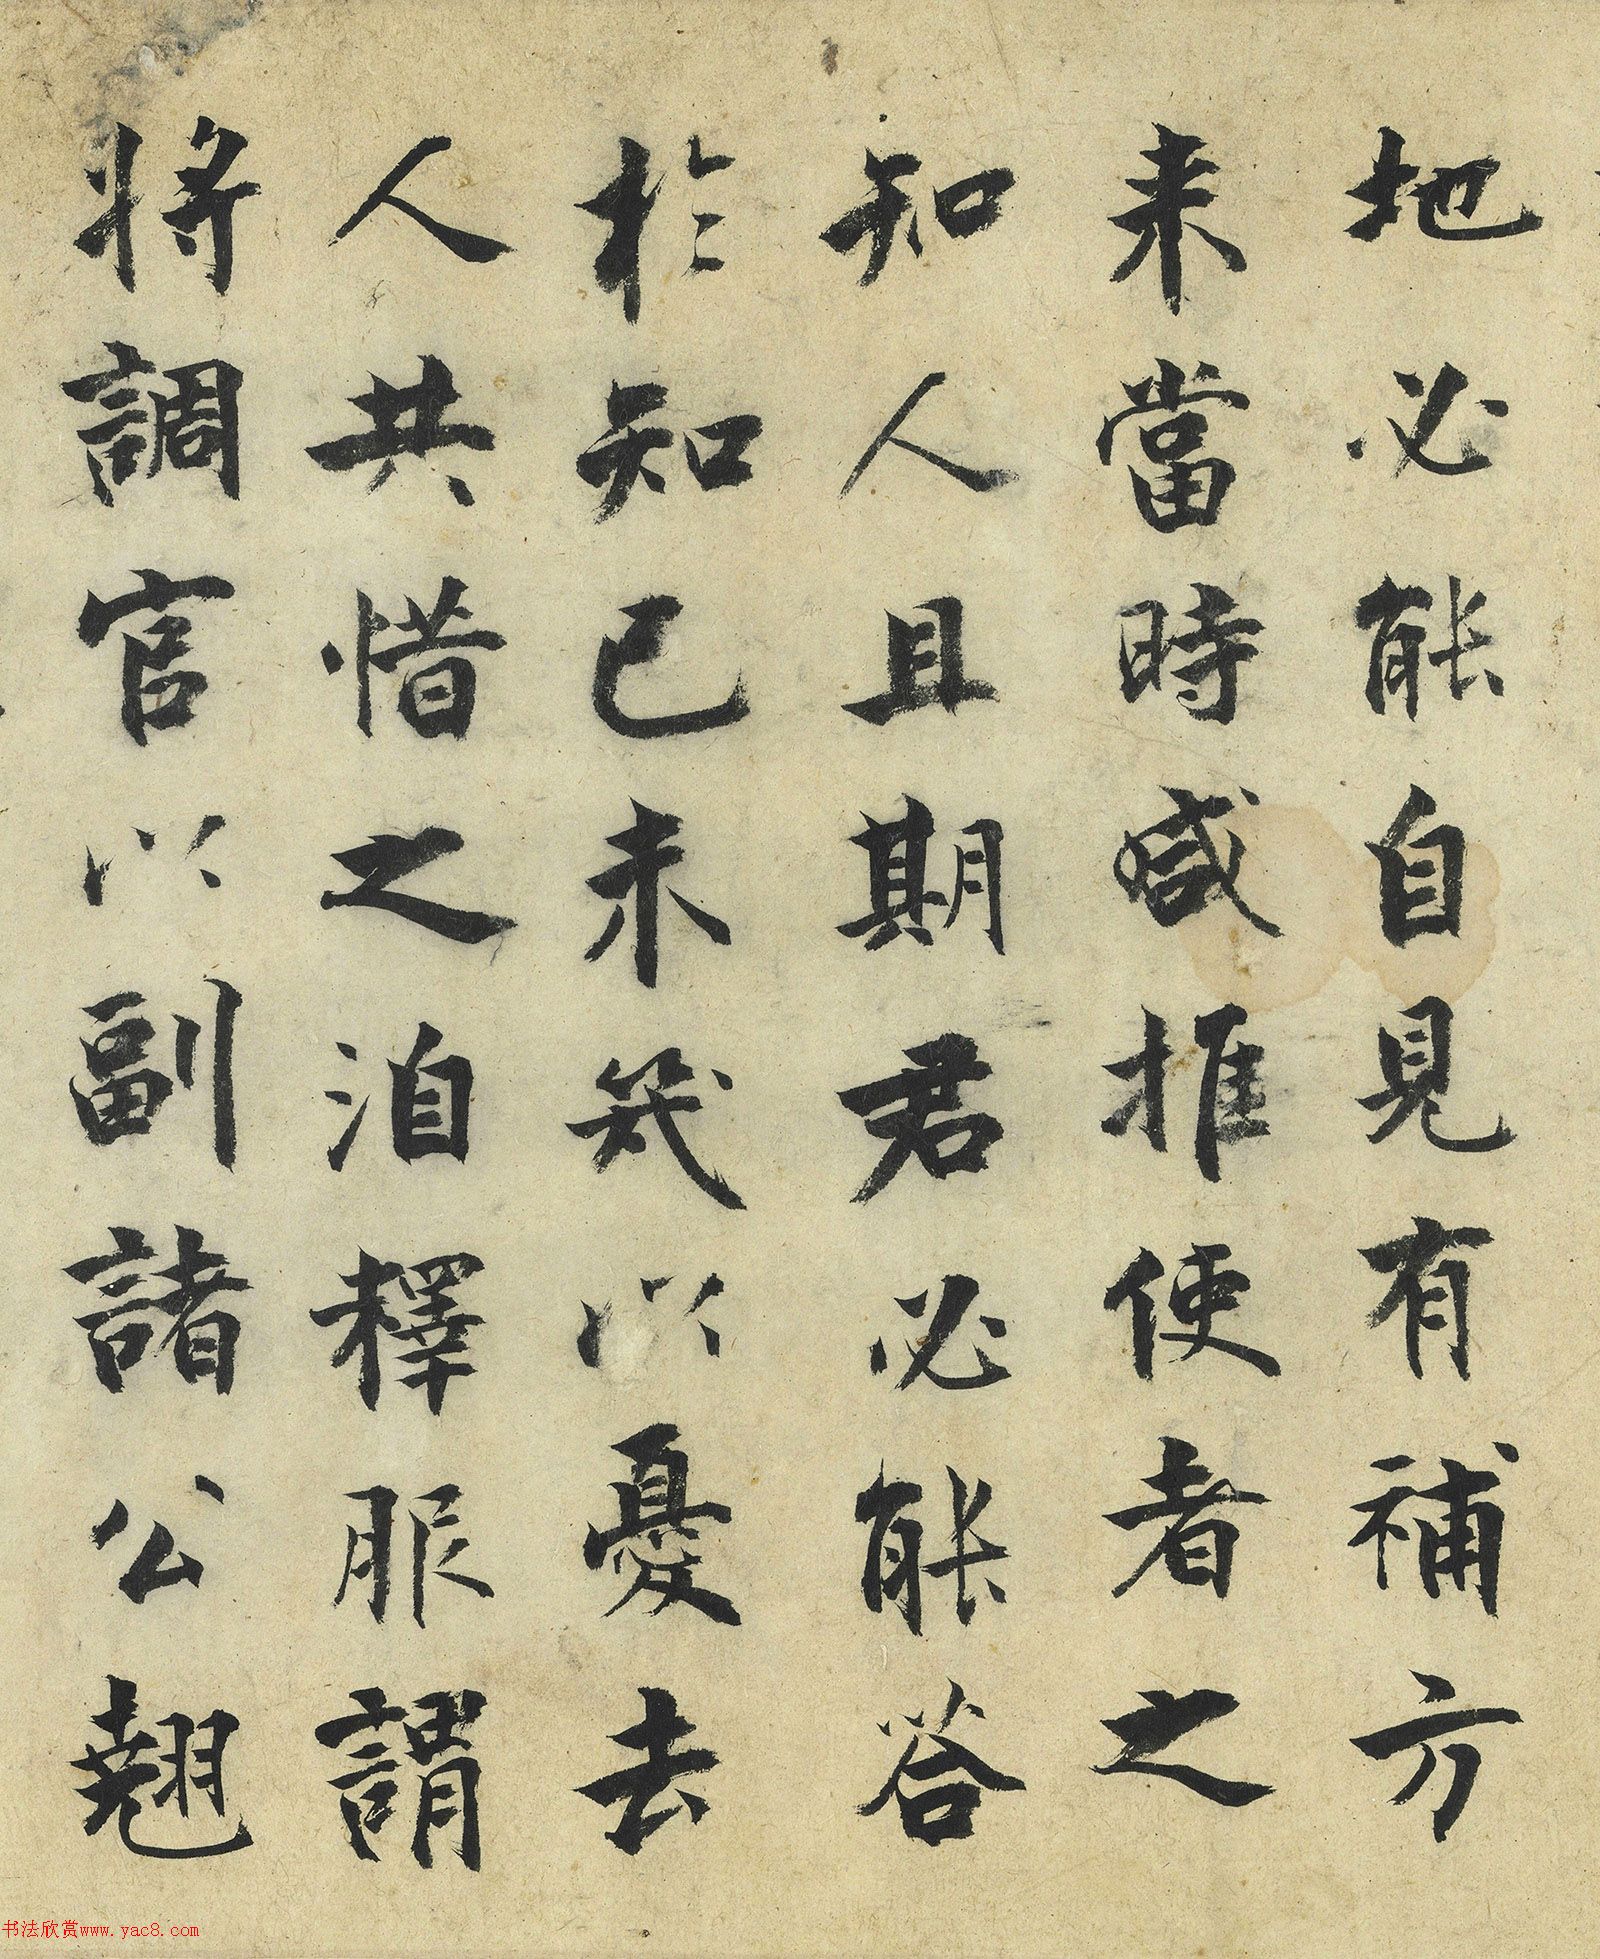 地必能自見有補方
来當時咸推使者之
知人且期君必能荅
於知已未幾以憂去
人共惜之洎釋服謂
將調官以副諸公翹
书法欣赏www.yac8.com